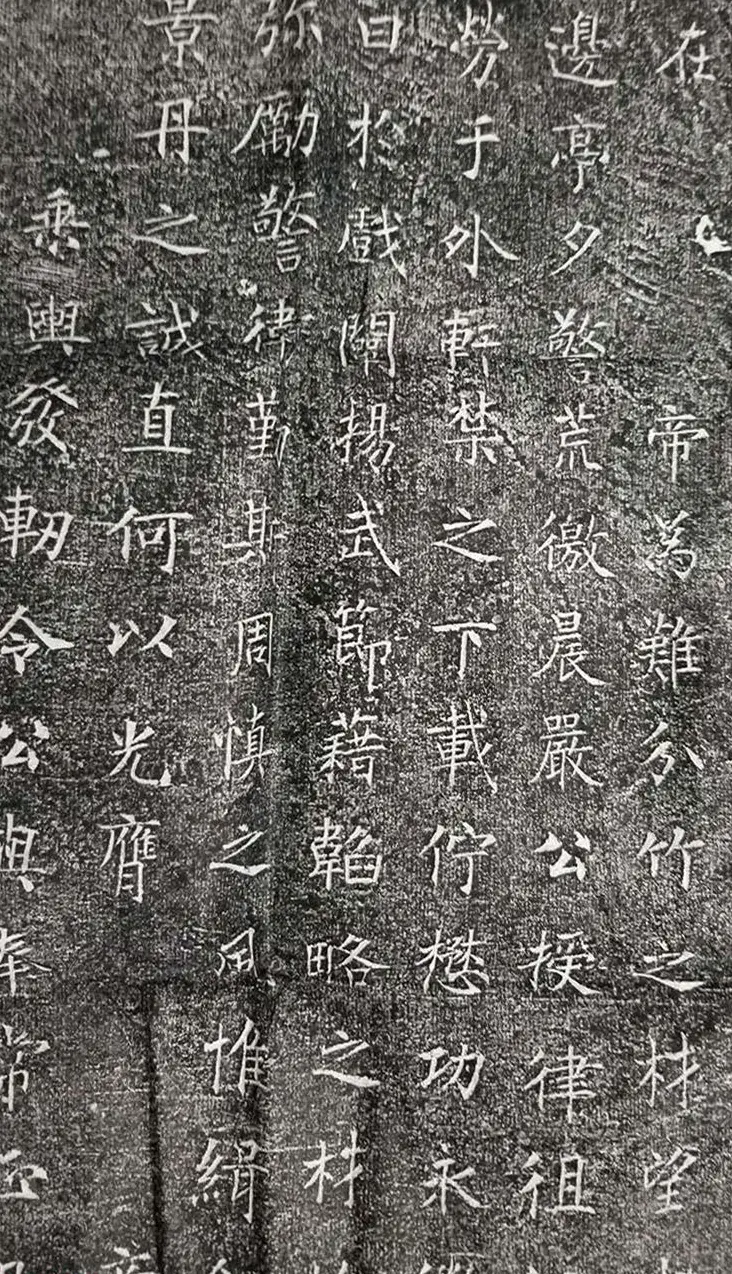 在帝為難分竹之材望
邊亭夕警荒徼晨嚴公援律徂
勞于外軒禁之下載佇懋功永
曰於戲闡揚武節藉韜略之材
弥勵警律勤斯周慎之風惟緝
景丹之誠直何以光膺
乘輿發軔令公與奉常